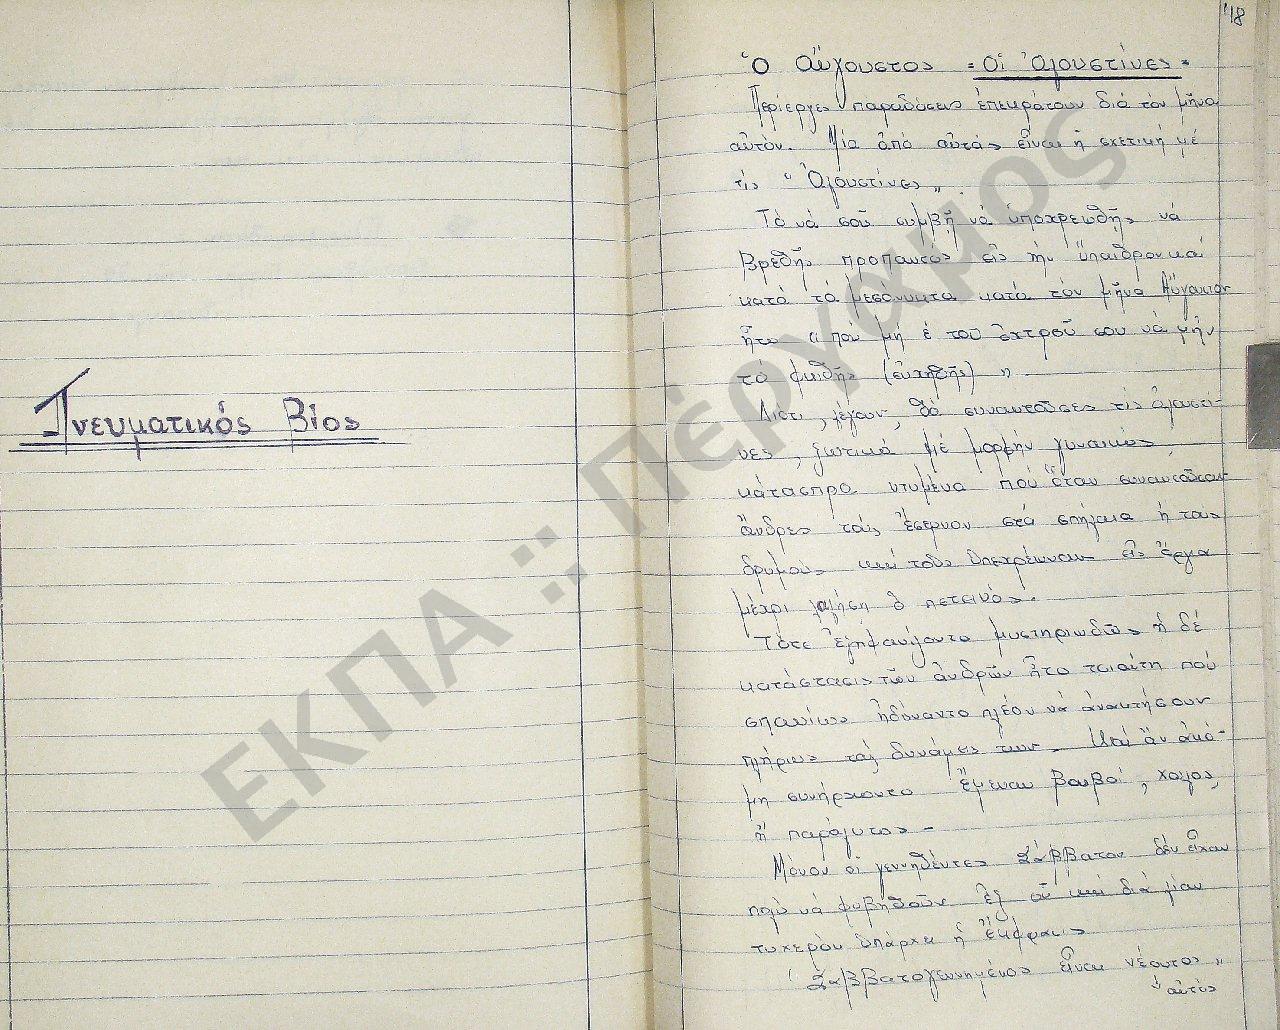 Πνευματικός Βίος
18
Ὁ Αὔγουστος = Οἱ Ἀλουστίνες =
Περίεργες παραδόσεις ἐπεκράτουν διά τόν μῆνα
αὐτόν. Μία ἀπό αὐτάς εἶναι ἡ σχετική μέ
τίς "Ἀλουστίνες".
Τό νά σοῦ συμβῆ νά ὑποχρεωθῆς νά
βρεθῆς προπαντός εἰς τήν ὕπαιθρον καί
κατά τά μεσάνυκτα κατά τόν μῆνα Αὔγουστον
ἦτο "πού μή ἐ τοῦ ἐχτροῦ σου νά μήν
τό (εὐχηθῆς)"
Διότι, λέγουν, θά συναντοῦσες τίς ἀλουστί-
νες, ξωτικά μέ μορφήν γυναικός
κάτασπρα ντυμένα πού ὅταν συναντοῦσαν
ἄνδρες τούς ἔσερνον στά σπήλαια ἤ τούς
δρυμούς καί τούς ὑπεχρέωναν εἰς ἔργα
μέχρι λαλήση ὁ πετεινός.
Τότε ἐξηφανίζοντο μυστηριωδῶς ἡ δέ
κατάστασις τῶν ἀνδρῶν ἦτο τοιαύτη πού
σπανίως ἠδύναντο πλέον νά ἀνακτήσουν
πλήρως τάς δυνάμεις των. Καί ἄν ἀκό-
μη συνήρχοντο ἔμεναν βουβοί, χωλοί,
ἤ παράλυτοι -
Μόνον οἱ γεννηθέντες Σάββατον δέν εἶχαν
πολύ νά φοβηθοῦν ἐξ οὗ καί διά μίαν
τυχερόν ὑπάρχει ἡ ἔκφρασις
"Σαββατογεννημένος εἶναι"
αὐτός
ΕΚΠΑ :: Πέργαμος